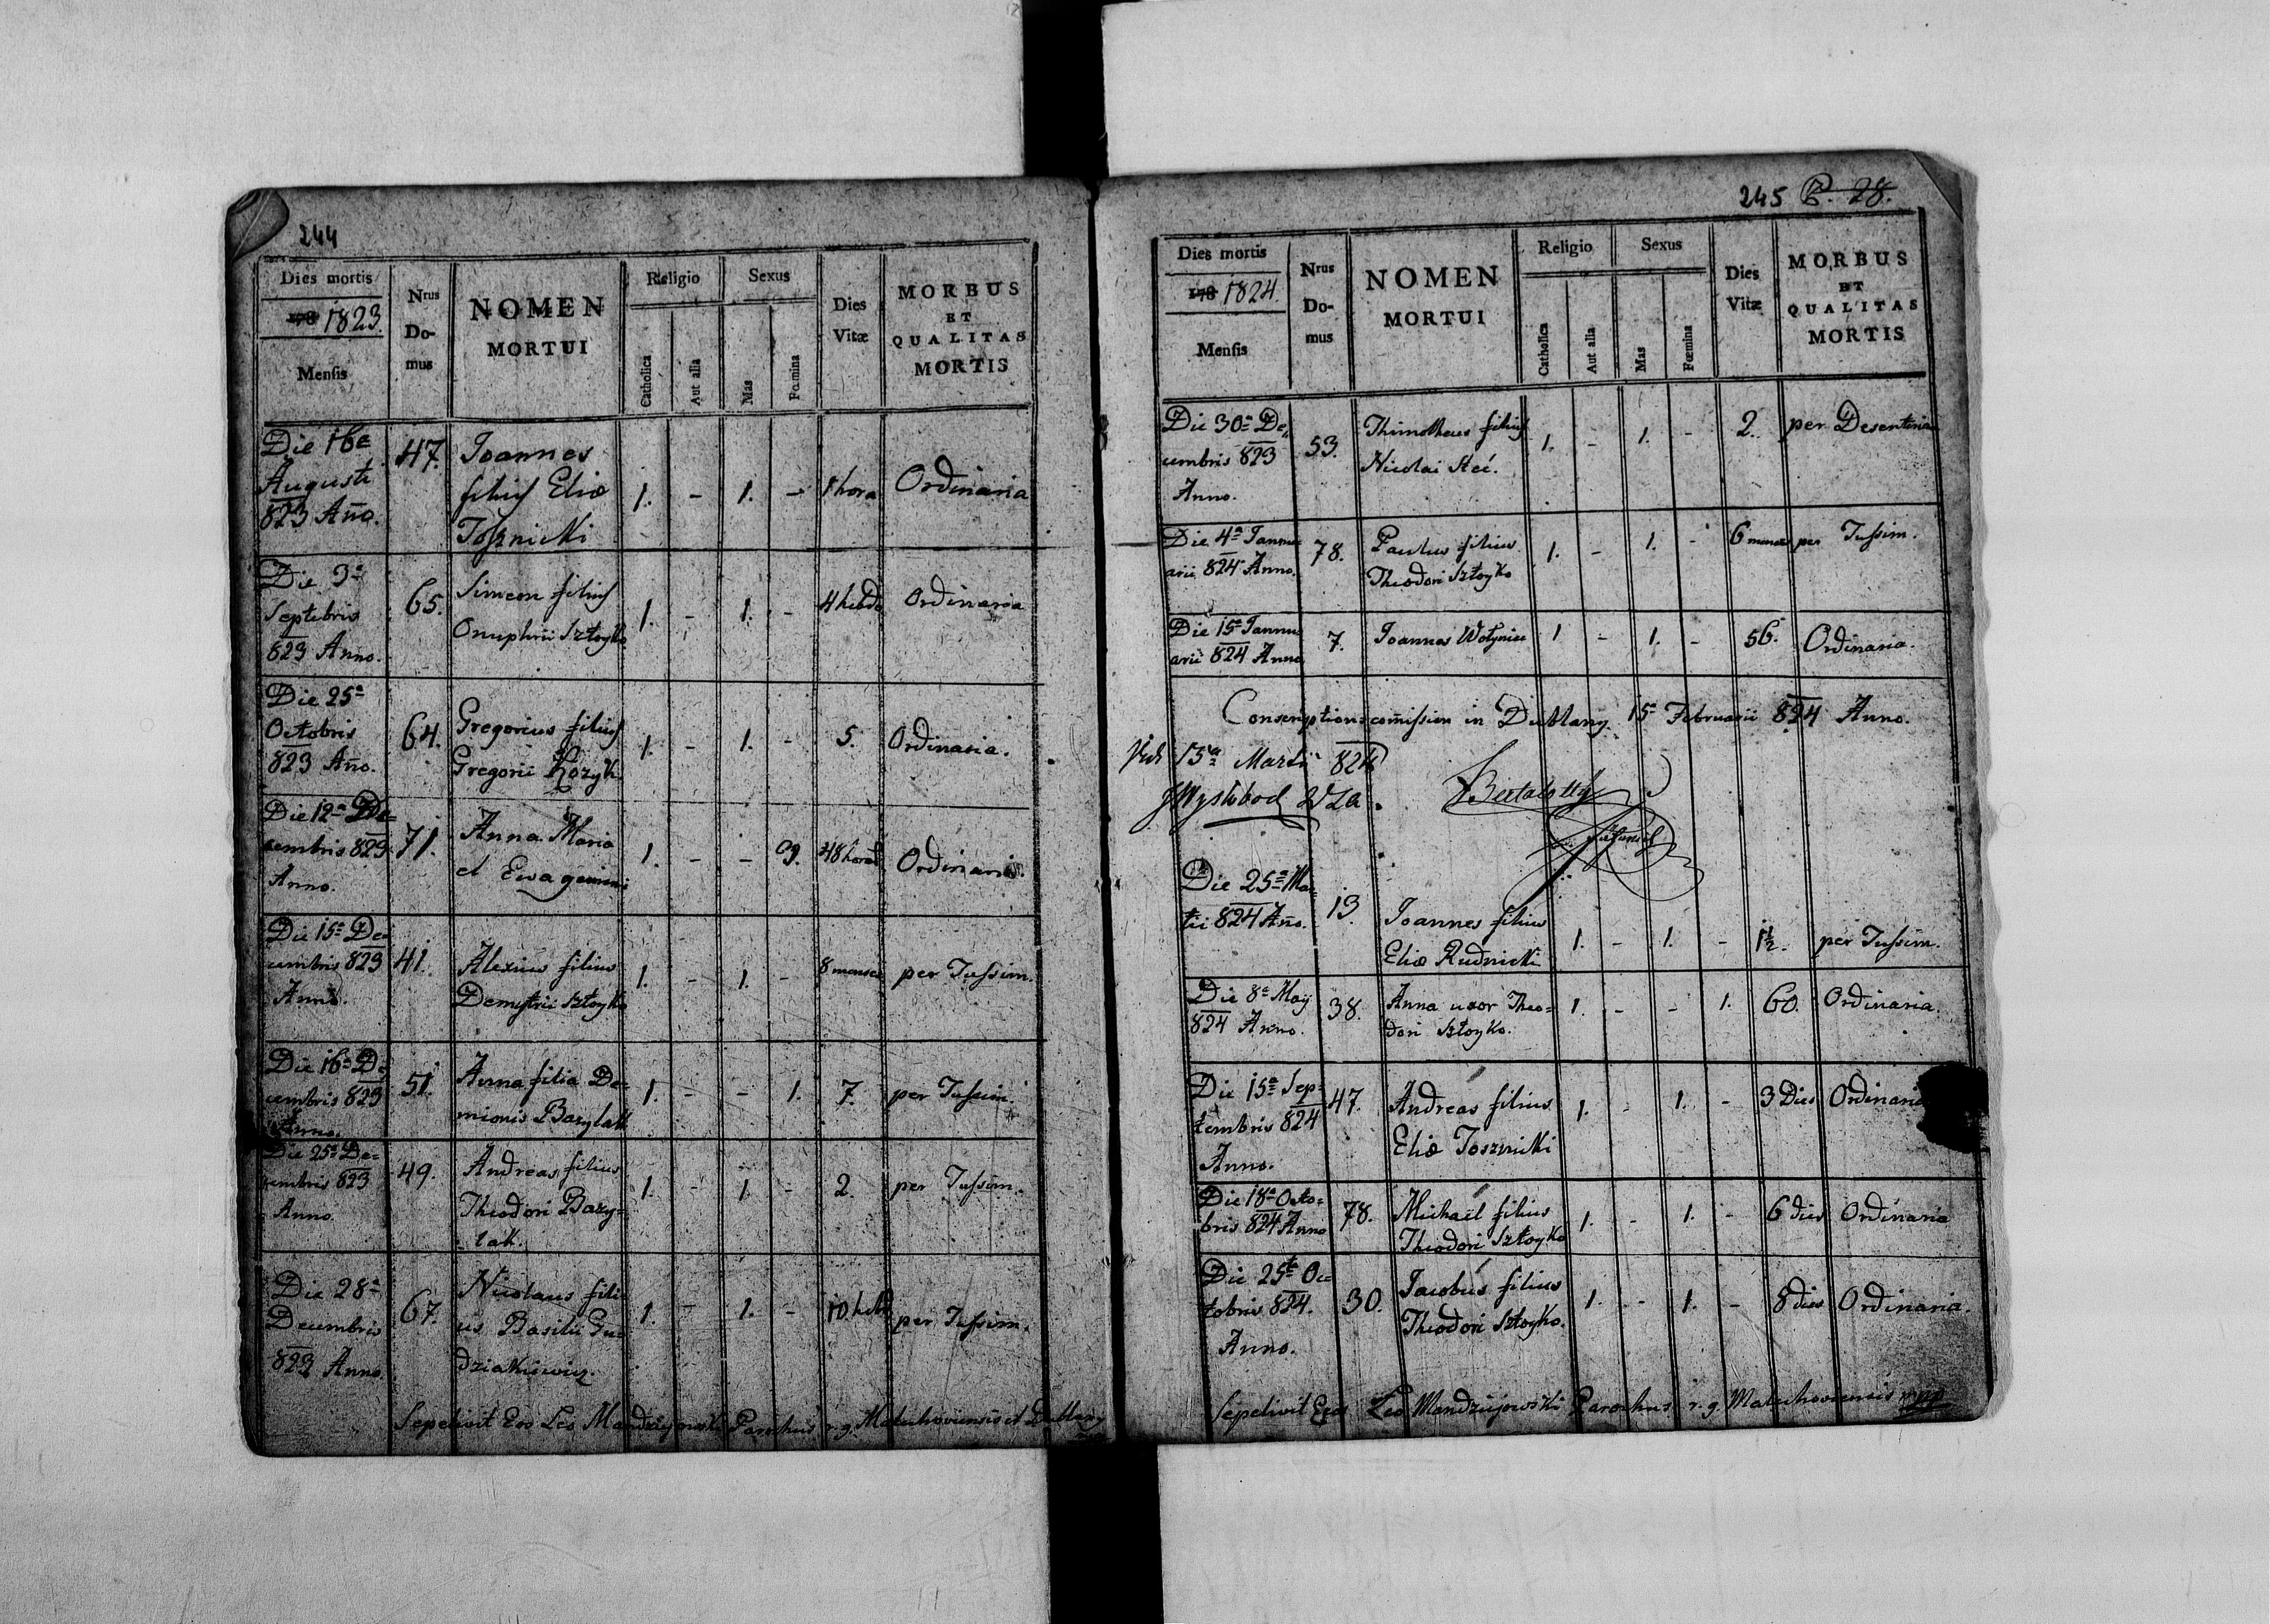 244
Dies mortis
178 1823.
Mensis
Nrus
Do-
mus
NOMEN
MORTUI
Religio
Catholica
Aut alia
Sexus
Mas
Fœmina
Dies
Vitæ
MORBUS
ET
QUALITAS
MORTIS
Die 16a
Augusti
823 Año.
47.
Joannes
filius Eliæ
Tosznicki
1. - 1. - 1 hora Ordinaria
Die 3a
Septebris
823 Anno.
65.
Simeon filius
Onuphrii Sztoyko
1. - 1. - 4 hebdo Ordinaria
Die 25a
Octobris
823 Año.
64.
Gregorius filius
Gregorii Kozyk
1. - 1. - 5. Ordinaria.
Die 12a De=
cembris 823
Anno.
71.
Anna Maria
et Ewa gemini
1. - - 2. 48 horas Ordinaria.
Die 15a De=
cembris 823
Anno.
41.
Alexius filius
Demytrii Sztoyko
1. - 1. - 8 menses per Tussim.
Die 16a De=
cembris 823
Anno.
51.
Anna filia De=
mionis Bazylak
1. - - 1. 7. per Tussim.
Die 25a De=
cembris 823
Anno.
49.
Andreas filius
Theodori Bazy=
lak.
1. - 1. - 2. per Tussim.
Die 28a
Decembris
823 Anno.
67.
Nicolaus fili=
us Basilii Gu=
dziakiewicz.
1. - 1. - 10 hebd per Tussim.
Sepelivit Eos Leo Mandzijowski Parochus r. g. Maluchoviensis et Dublany
245 P. 28.
Dies mortis
178 1824.
Mensis
Nrus
Do-
mus
NOMEN
MORTUI
Religio
Catholica
Aut alia
Sexus
Mas
Fœmina
Dies
Vitæ
MORBUS
ET
QUALITAS
MORTIS
Die 30a De,,
cembris 823
Anno.
53.
Thimotheus filius
Nicolai Stec.
1. - 1. - 2. per Desenteria
Die 4a Januu=
arii 824 Anno.
78.
Paulus filius
Theodori Sztoyko
1. - 1. - 6 menses per Tussim.
Die 15a Januu=
arii 824 Anno
7.
Joannes Wołyniec
1 - 1. - 56. Ordinaria.
Conscriptions comission in Dublany. 15a Februarii 824 Anno.
Vidi 15a Martii 824
Bertalotty
Die 25a Ma=
tii 824 Año.
13.
Joannes filius
Eliæ Rudnicki
1. - 1. - 1½. per Tussim.
Die 8a Maÿ
824 Anno.
38.
Anna uxor Theo=
dori Sztoyko.
1. - - 1. 60. Ordinaria.
Die 15a Sep=
tembris 824
Anno.
47.
Andreas filius
Eliæ Tosznicki
1. - 1. - 3 Dies Ordinaria
Die 18a Octo=
bris 824 Anno
78.
Michaël filius
Theodori Sztoyko
1. - 1. - 6 dies Ordinaria
Die 25a Oc=
tobris 824.
Anno.
30.
Jacobus filius
Theodori Sztoyko.
1. - 1. - 8 dies Ordinaria.
Sepelivit Eos Leo Mandzijowski Parochus r. g. Maluchoviensis mpp